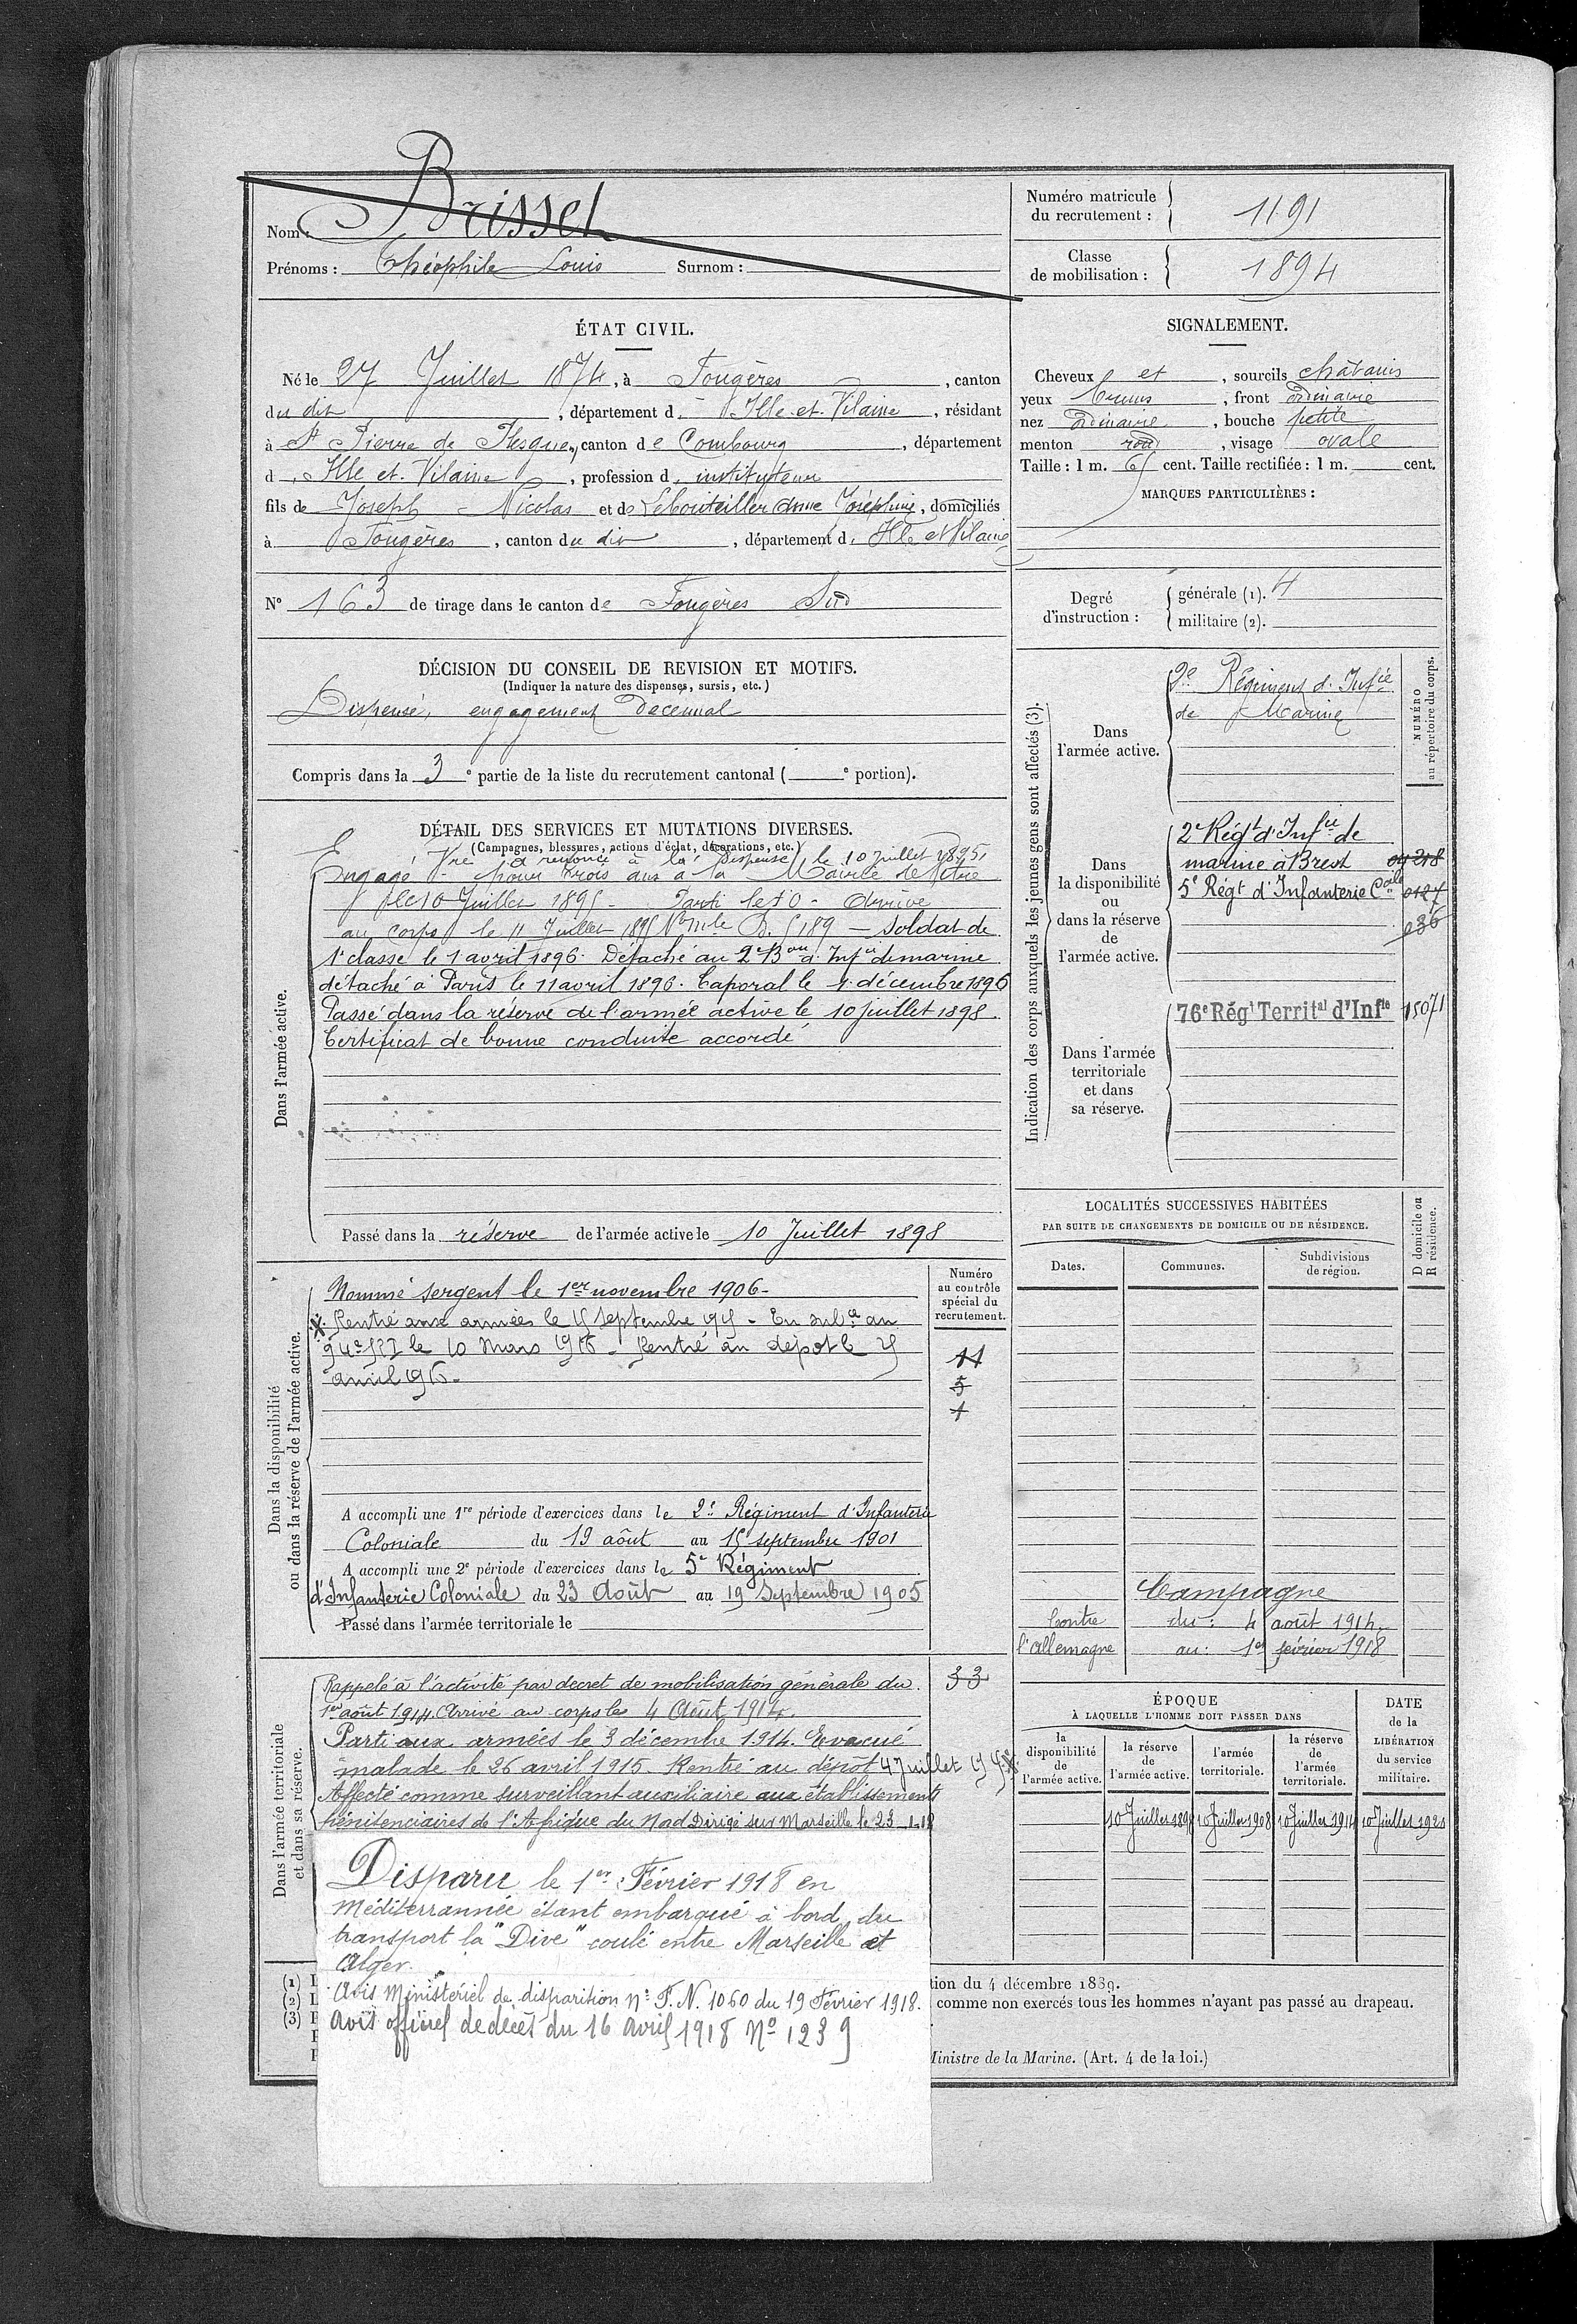 Nom : Brissel
Prénoms : Théophile Louis Surnom :
Numéro matricule du recrutement : 1191
Classe de mobilisation : 1894
ÉTAT CIVIL.
Né le 27 Juillet 1874, à Fougères, canton
du dit, département d. Ille-et-Vilaine, résidant
à St Pierre de Plesguen, canton de Combourg, département
d. Ille et Vilaine, profession d. instituteur
fils de Joseph Nicolas et de Lebouteiller Anne Joséphine, domiciliés
à Fougères, canton du dit, département d. Ille et Vilaine
N° 163 de tirage dans le canton de Fougères Sud
SIGNALEMENT.
Cheveux et, sourcils châtains
yeux bruns, front ordinaire
nez ordinaire, bouche petite
menton rond, visage ovale
Taille : 1 m. 65 cent. Taille rectifiée : 1 m. cent.
MARQUES PARTICULIÈRES :
Degré d'instruction :
générale (1). 4
militaire (2).
DÉCISION DU CONSEIL DE REVISION ET MOTIFS.
(Indiquer la nature des dispenses, sursis, etc.)
Dispensé, engagement décennal
Compris dans la 3e partie de la liste du recrutement cantonal ( e portion).
DÉTAIL DES SERVICES ET MUTATIONS DIVERSES.
(Campagnes, blessures, actions d'éclat, décorations, etc.)
a renoncé à la dispense le 10 juillet 1895.
Dans l'armée active.
Engagé Vre pour trois ans à la Mairie de Vitré
le 10 Juillet 1895 - Parti le 10 - Arrivé
au corps le 11 Juillet 1895 No mle B. 5189 — Soldat de
1e classe le 1 avril 1896. Détaché au 2e Bon d'Infie de marine
détaché à Paris le 11 avril 1896. Caporal le 1 décembre 1896
Passé dans la réserve de l'armée active le 10 juillet 1898.
Certificat de bonne conduite accordé
Passé dans la réserve de l'armée active le 10 Juillet 1898
Dans la disponibilité
ou dans la réserve de l'armée active.
Numéro
au contrôle
spécial du
recrutement.
Nommé sergent le 1er novembre 1906-
Rentré aux armées le 15 septembre 1915 - En subce au
94e RIT le 10 Mars 1916 - Rentré au dépot le 25
avril 1916-
11
5
1
A accompli une 1re période d'exercices dans le 2e Régiment d'Infanterie
Coloniale du 19 août au 15 septembre 1901
A accompli une 2e période d'exercices dans le 5e Régiment
d'Infanterie Coloniale du 23 Août au 19 Septembre 1905
Passé dans l'armée territoriale le
Dans l'armée territoriale
et dans sa réserve.
Rappelé à l'activité par décret de mobilisation générale du
1er août 1914. Arrivé au corps le 4 Août 1914.
Parti aux armées le 3 décembre 1914. Evacué
malade le 26 avril 1915. Rentré au dépôt 4 Juillet 1915
Affecté comme surveillant auxiliaire aux établissements
pénitenciaires de l'Afrique du Nord Dirigé sur Marseille le 23-1-18
33
Disparu le 1er Février 1918 en
Méditerrannée étant embarqué à bord du
transport la "Dive" coulé entre Marseille et
Alger.
Avis Ministériel de disparition No F. N. 1060 du 19 Février 1918.
Avis officiel de décès du 16 avril 1918 No 1239
Indication des corps auxquels les jeunes gens sont affectés (3).
NUMÉRO
au répertoire du corps.
Dans
l'armée active.
2e Régiment d'Infie
de Marine
Dans
la disponibilité
ou
dans la réserve
de
l'armée active.
2e Régt d'Infie de
marine à Brest
5e Régt d'Infanterie Cale 0127
036
Dans l'armée
territoriale
et dans
sa réserve.
76e Régt Territal d'Infie 15071
LOCALITÉS SUCCESSIVES HABITÉES
PAR SUITE DE CHANGEMENTS DE DOMICILE OU DE RÉSIDENCE.
D domicile ou
R résidence.
Dates. Communes. Subdivisions
de région.
Campagne
Contre du : 4 août 1914
l'Allemagne au : 1er février 1918
ÉPOQUE
À LAQUELLE L'HOMME DOIT PASSER DANS
la
disponibilité
de
l'armée active.
la réserve
de
l'armée active.
l'armée
territoriale.
la réserve
de
l'armée
territoriale.
DATE
de la
LIBÉRATION
du service
militaire.
10 Juillet 1898 10 Juillet 1908 10 Juillet 1914 10 Juillet 1920
(1)
(2)
(3)
tion du 4 décembre 1889.
comme non exercés tous les hommes n'ayant pas passé au drapeau.
Ministre de la Marine. (Art. 4 de la loi.)